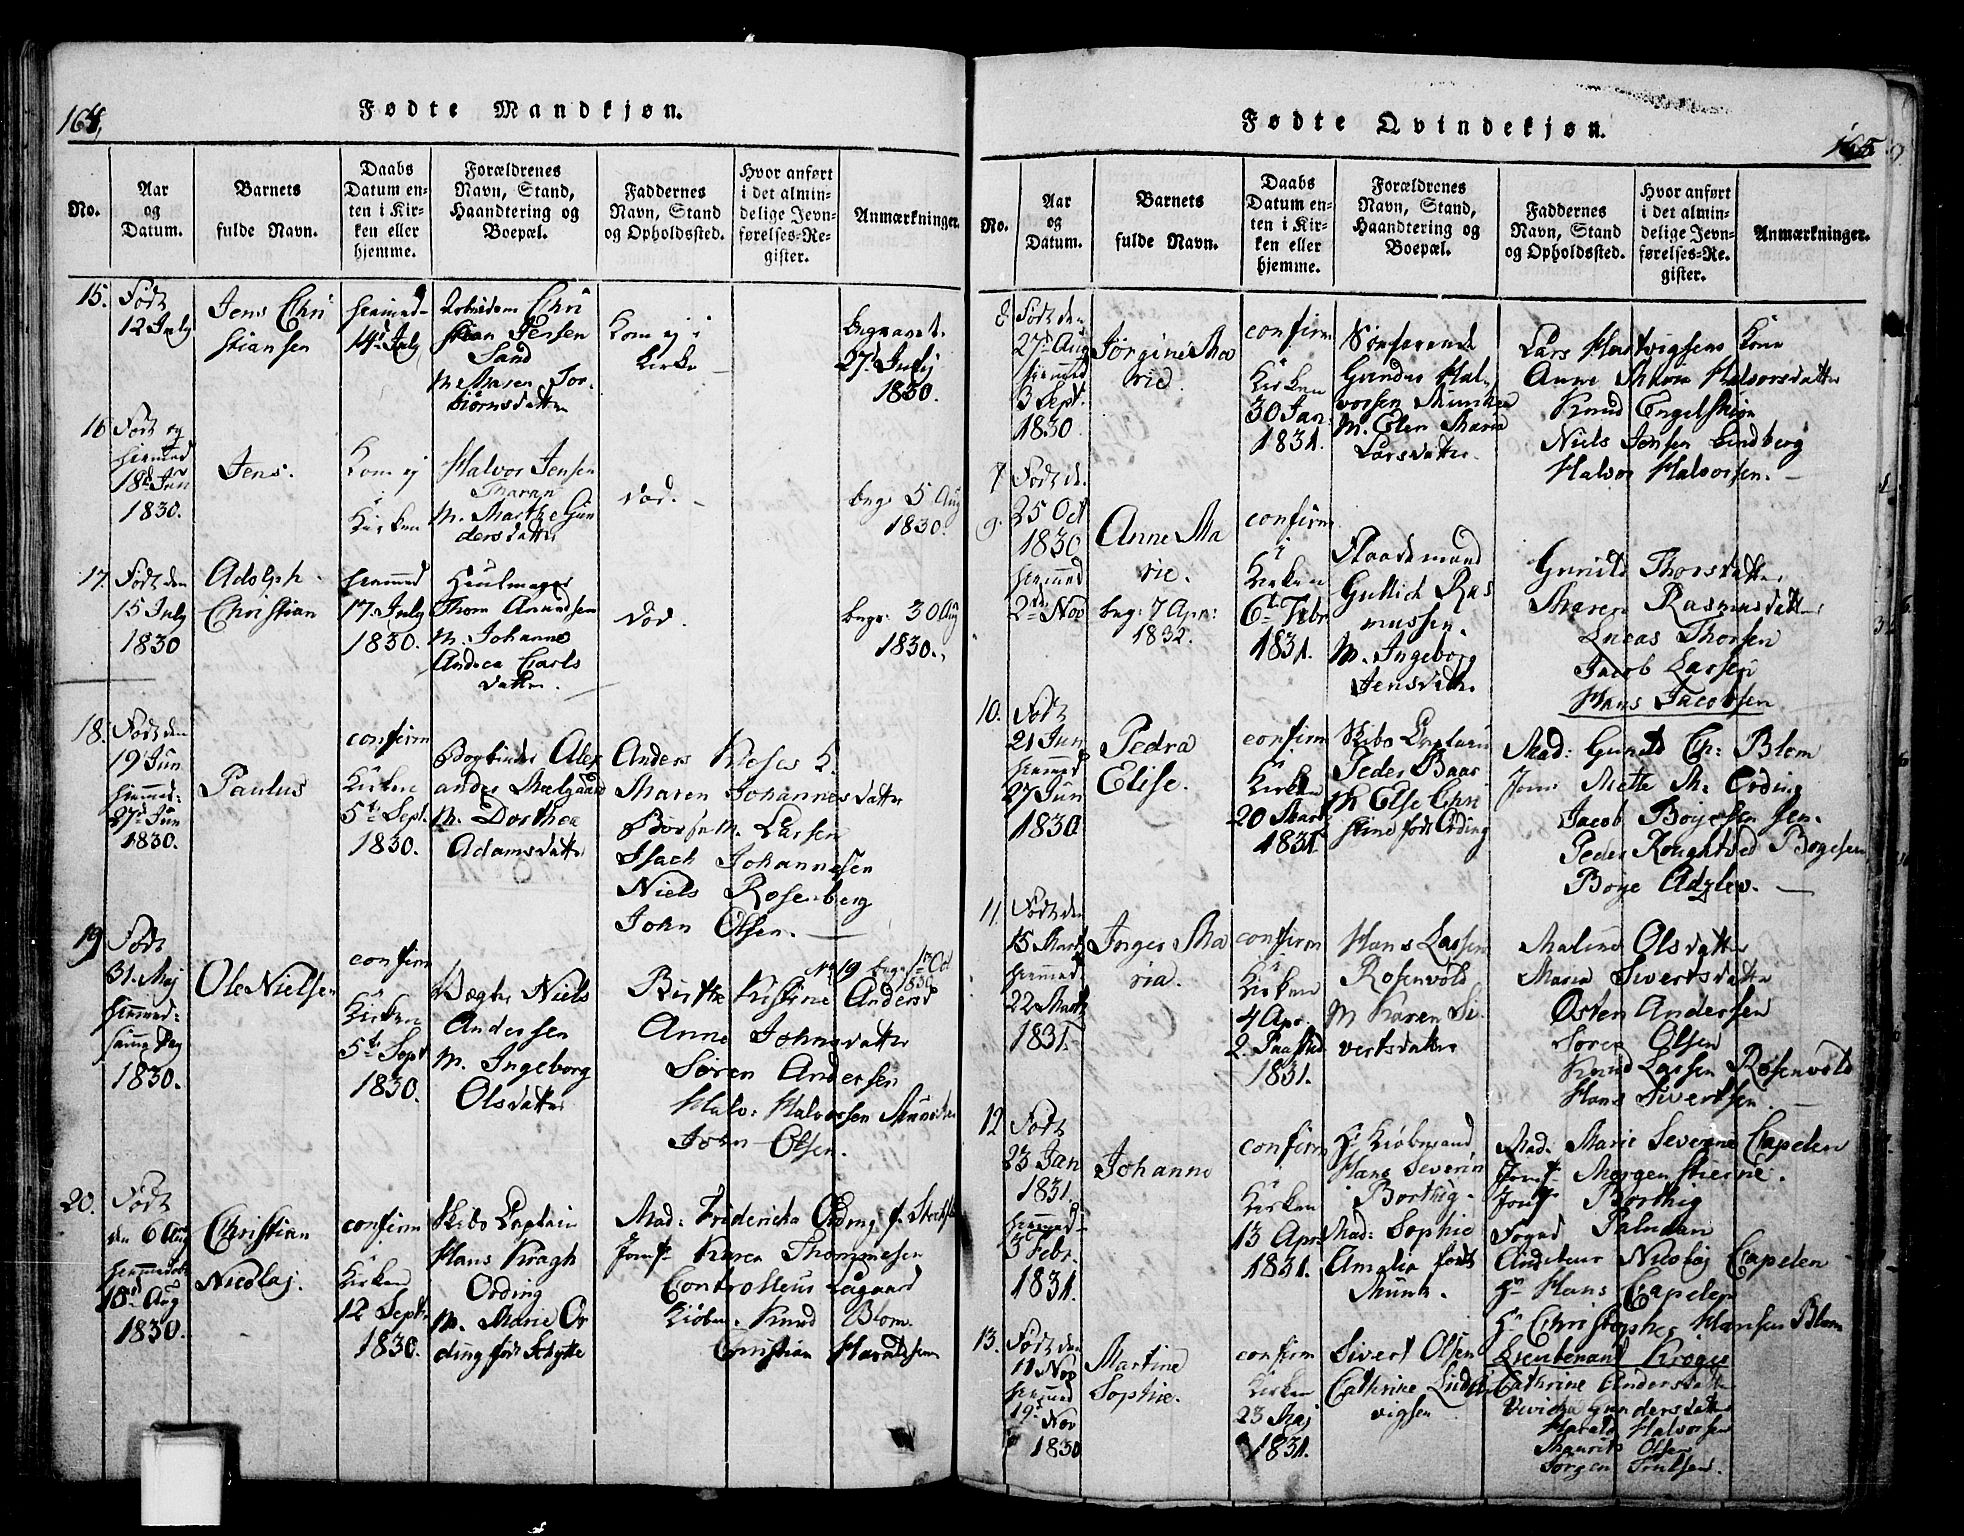 164,
Fødte Mandkjøn.
No.
Aar og Datum.
Barnets fulde Navn.
Daabs Datum enten i Kirken eller hjemme.
Forældrenes Navn, Stand, Haandtering og Boepæl.
Faddernes Navn, Stand og Opholdssted.
Hvor anført i det almindelige Jevnførelses-Register.
Anmærkninger.
15.
Født
12 July
Jens Chri
stiansen
hiemmed
14d July
Arbeidsm Chri
stian Jensen
Sand
M Maren Tor-
biørnsdatter
Kom ej i
Kirke
begravet
27d July
1830.
16
Født og
hiemmed
18d Jun
1830.
Jens.
Kom ej
i
Kirken
Halvor Jensen
M. Marthe Gun
dersdatter
død.
begr 5 Aug
1830.
17.
Født den
15 July
1830
Adolph
Christian
hiemmed
17. July
1830.
Hiulmager
Thom Amundsen
M. Johanne
Andrea Carls
datter.
død.
begr. 30 Aug
1830.
18.
Født den
19 Jun
hiemmed:
27d Jun
1830.
Paulus
confirm
i
Kirken
5te Sept.
1830.
Bogbinder Alex
ander Mælgaard
M. Dorthea
Adamsdatter
Anders
Maren Johannesdatter
M. Larsen
Isach Johannesen
Niels Rosenberg
John Olsen.
19
Født
31. Maj
hiemmed:
samme Dag
1830.
Ole Nielsen
confirm
i
Kirken
5te Sept
1830.
Vægter Niels
Andersen
M. Ingeborg
Olsdatter
No 19 begr. 1 Oct
1830
Birthe Kistine Andersd
Anne Johnsdatter
Søren Andersen
Halv: Halvorsen Muncken
John Olsen.
20.
Født
den 6 Aug
hiemmed
18d Aug
1830.
Christian
Nicolaj.
confirm
i
Kirken
12 Septr
1830.
Skibs Captain
Hans Kragh
Ording
M. Marie Or
ding født Schytte
Mad: Fridericha Ording f.
Jomf. Karen Thommesen
Controlleur Lagaard
Kiøbm. Knud Blom.
Christian Haraldsen
Fødte Qvindekjøn.
165
No.
Aar og Datum.
Barnets fulde Navn.
Daabs Datum enten i Kirken eller hjemme.
Forældrenes Navn, Stand, Haandtering og Boepæl.
Faddernes Navn, Stand og Opholdssted.
Hvor anført i det almindelige Jevnførelses-Register.
Anmærkninger.
8
Født den
27d Aug
hiemmed
3 Sept.
1830
Jørgine Ma
rie.
confirm
i
Kirken
30 Jan.
1831.
Søefarende
Gunder Hal
vorsen Muncken
M. Elen Maria
Larsdatter.
Lars Hartvigsens Kone
Anne Maria Halvorsdatter
Knud Engelstiøn
Niels Jensen Lindberg
Halvor Halvorsen.
9.
Født d.
25 Oct
1830
hiemmed
2den Nov
Anne Ma
rie.
begr: 7 Apr:
1832.
confirm
i
Kirken
6te Febr
1831.
Flaademand
Gullich Ras
mussen.
M. Ingeborg
Jensdatter
Gunild Thorsdatter
Maren Rasmusdatter
Lucas Thorsen
Jacob Larsen
Hans Jacobsen
10.
Født
21 Jun
hiemmed
27 Jun
1830.
Pedra
Elise.
confirm
i
Kirken
20 Mart
1831.
Skibs Captain
Peder Baar
M Else Chri
stine født Ording
Mad: Gunild Ch: Blom
Jomf Mette M. Ording
Jacob Boyesen sen.
Peder Roughtved Boyesen
Boye Adzlev.
11.
Født den
15 Mart
hiemmed
22 Mart
1831.
Inger Ma
ria.
confirm
i
Kirken
4 Apr
2. Paaskd
1831.
Hans Lassen
Rosenvold
M Karen Si
vertsdatter
Malene Olsdatter
Maria Sivertsdatter
Østen Andersen
Søren Olsen
Knud Lassen Rosenvold
Hans Sivertsen.
12
Født
23 Jan
1831.
hiemmed
3 Febr.
1831.
Johanne
confirm
i
Kirken
13 Apr:
1831.
Hr Kiøbmand
Hans Severin
Borthig.
Mad: Sophie
Amalia født
Munk.
Mad: Marie Severine Capelen
Jomf. Morgenstierne.
Jomf Borthig
Foged Paludan
Auditeur Nicolaj Capelen
Hr Hans Capelen
Hr Christopher Hansen Blom
Lieutenant Krøger
13.
Født den
11 Nov
hiemmed
19d Nov
1830
Martine
Sophie.
confirm
i
Kirken
23 Maj
1831.
Sivert Olsen
Cathrine Lud
vigsen
Cathrine Andersdatter
Vivicha Gundersdatter
Harald Halvorsen
Maurits Olsen
Jørgen Trulsen.